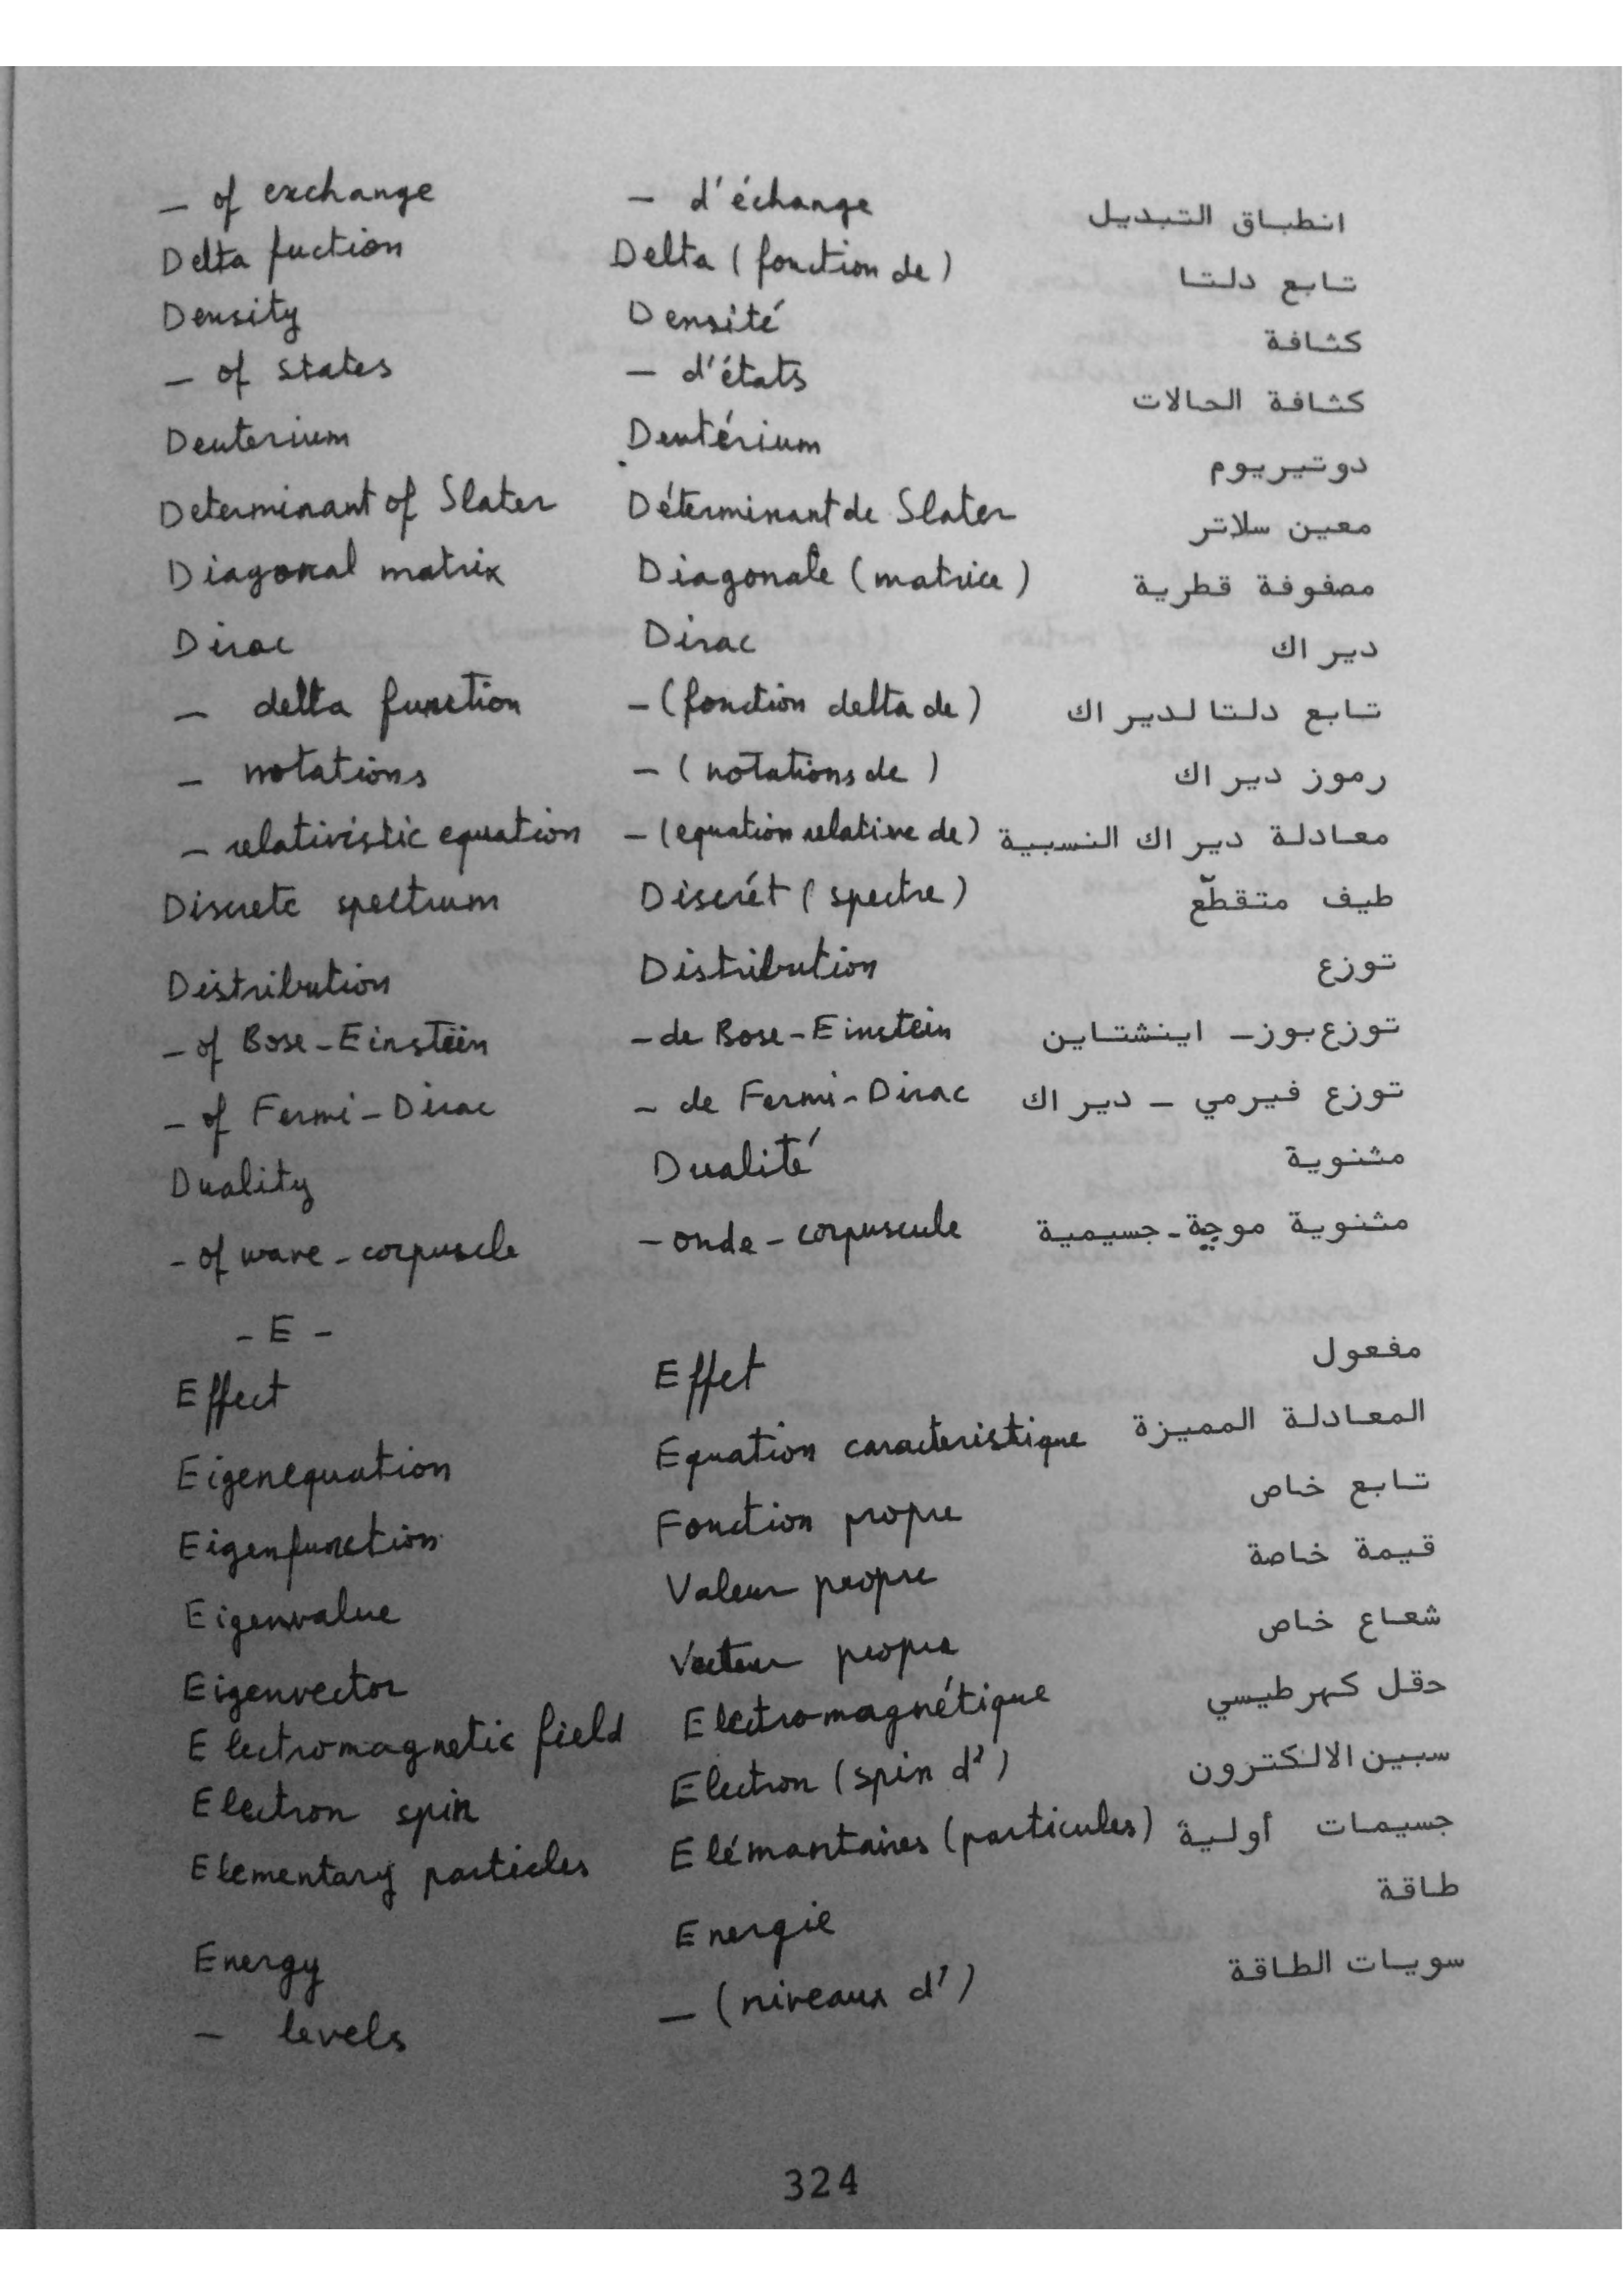 – of exchange – d'échange انطباق التبديل
Delta fuction Delta (fonction de) تابع دلتا
Density Densité كثافة
– of states – d'états كثافة الحالات
Deuterium Deutérium دوتيريوم
Determinant of Slater Déterminant de Slater معين سلاتر
Diagonal matrix Diagonale (matrice) مصفوفة قطرية
Dirac Dirac ديراك
– delta function – (fonction delta de) تابع دلتا لديراك
– notations – (notations de) رموز ديراك
– relativistic equation – (equation relative de) معادلة ديراك النسبية
Discrete spectrum Discrét (spectre) طيف متقطّع
Distribution Distribution توزع
– of Bose-Einstein – de Bose-Einstein توزع بوز – اينشتاين
– of Fermi-Dirac – de Fermi-Dirac توزع فيرمي – ديراك
Duality Dualité مثنوية
– of wave-corpuscle – onde-corpuscule مثنوية موجية-جسيمية
– E –
Effect Effet مفعول
Eigenequation Equation caracteristique المعادلة المميزة
Eigenfunction Fonction propre تابع خاص
Eigenvalue Valeur propre قيمة خاصة
Eigenvector Vecteur propre شعاع خاص
Electromagnetic field Electromagnétique حقل كهرطيسي
Electron spin Electron (spin d') سبين الالكترون
Elementary particles Elémantaires (particules) جسيمات أولية
Energy Energie طاقة
– levels – (niveaux d') سويات الطاقة
324